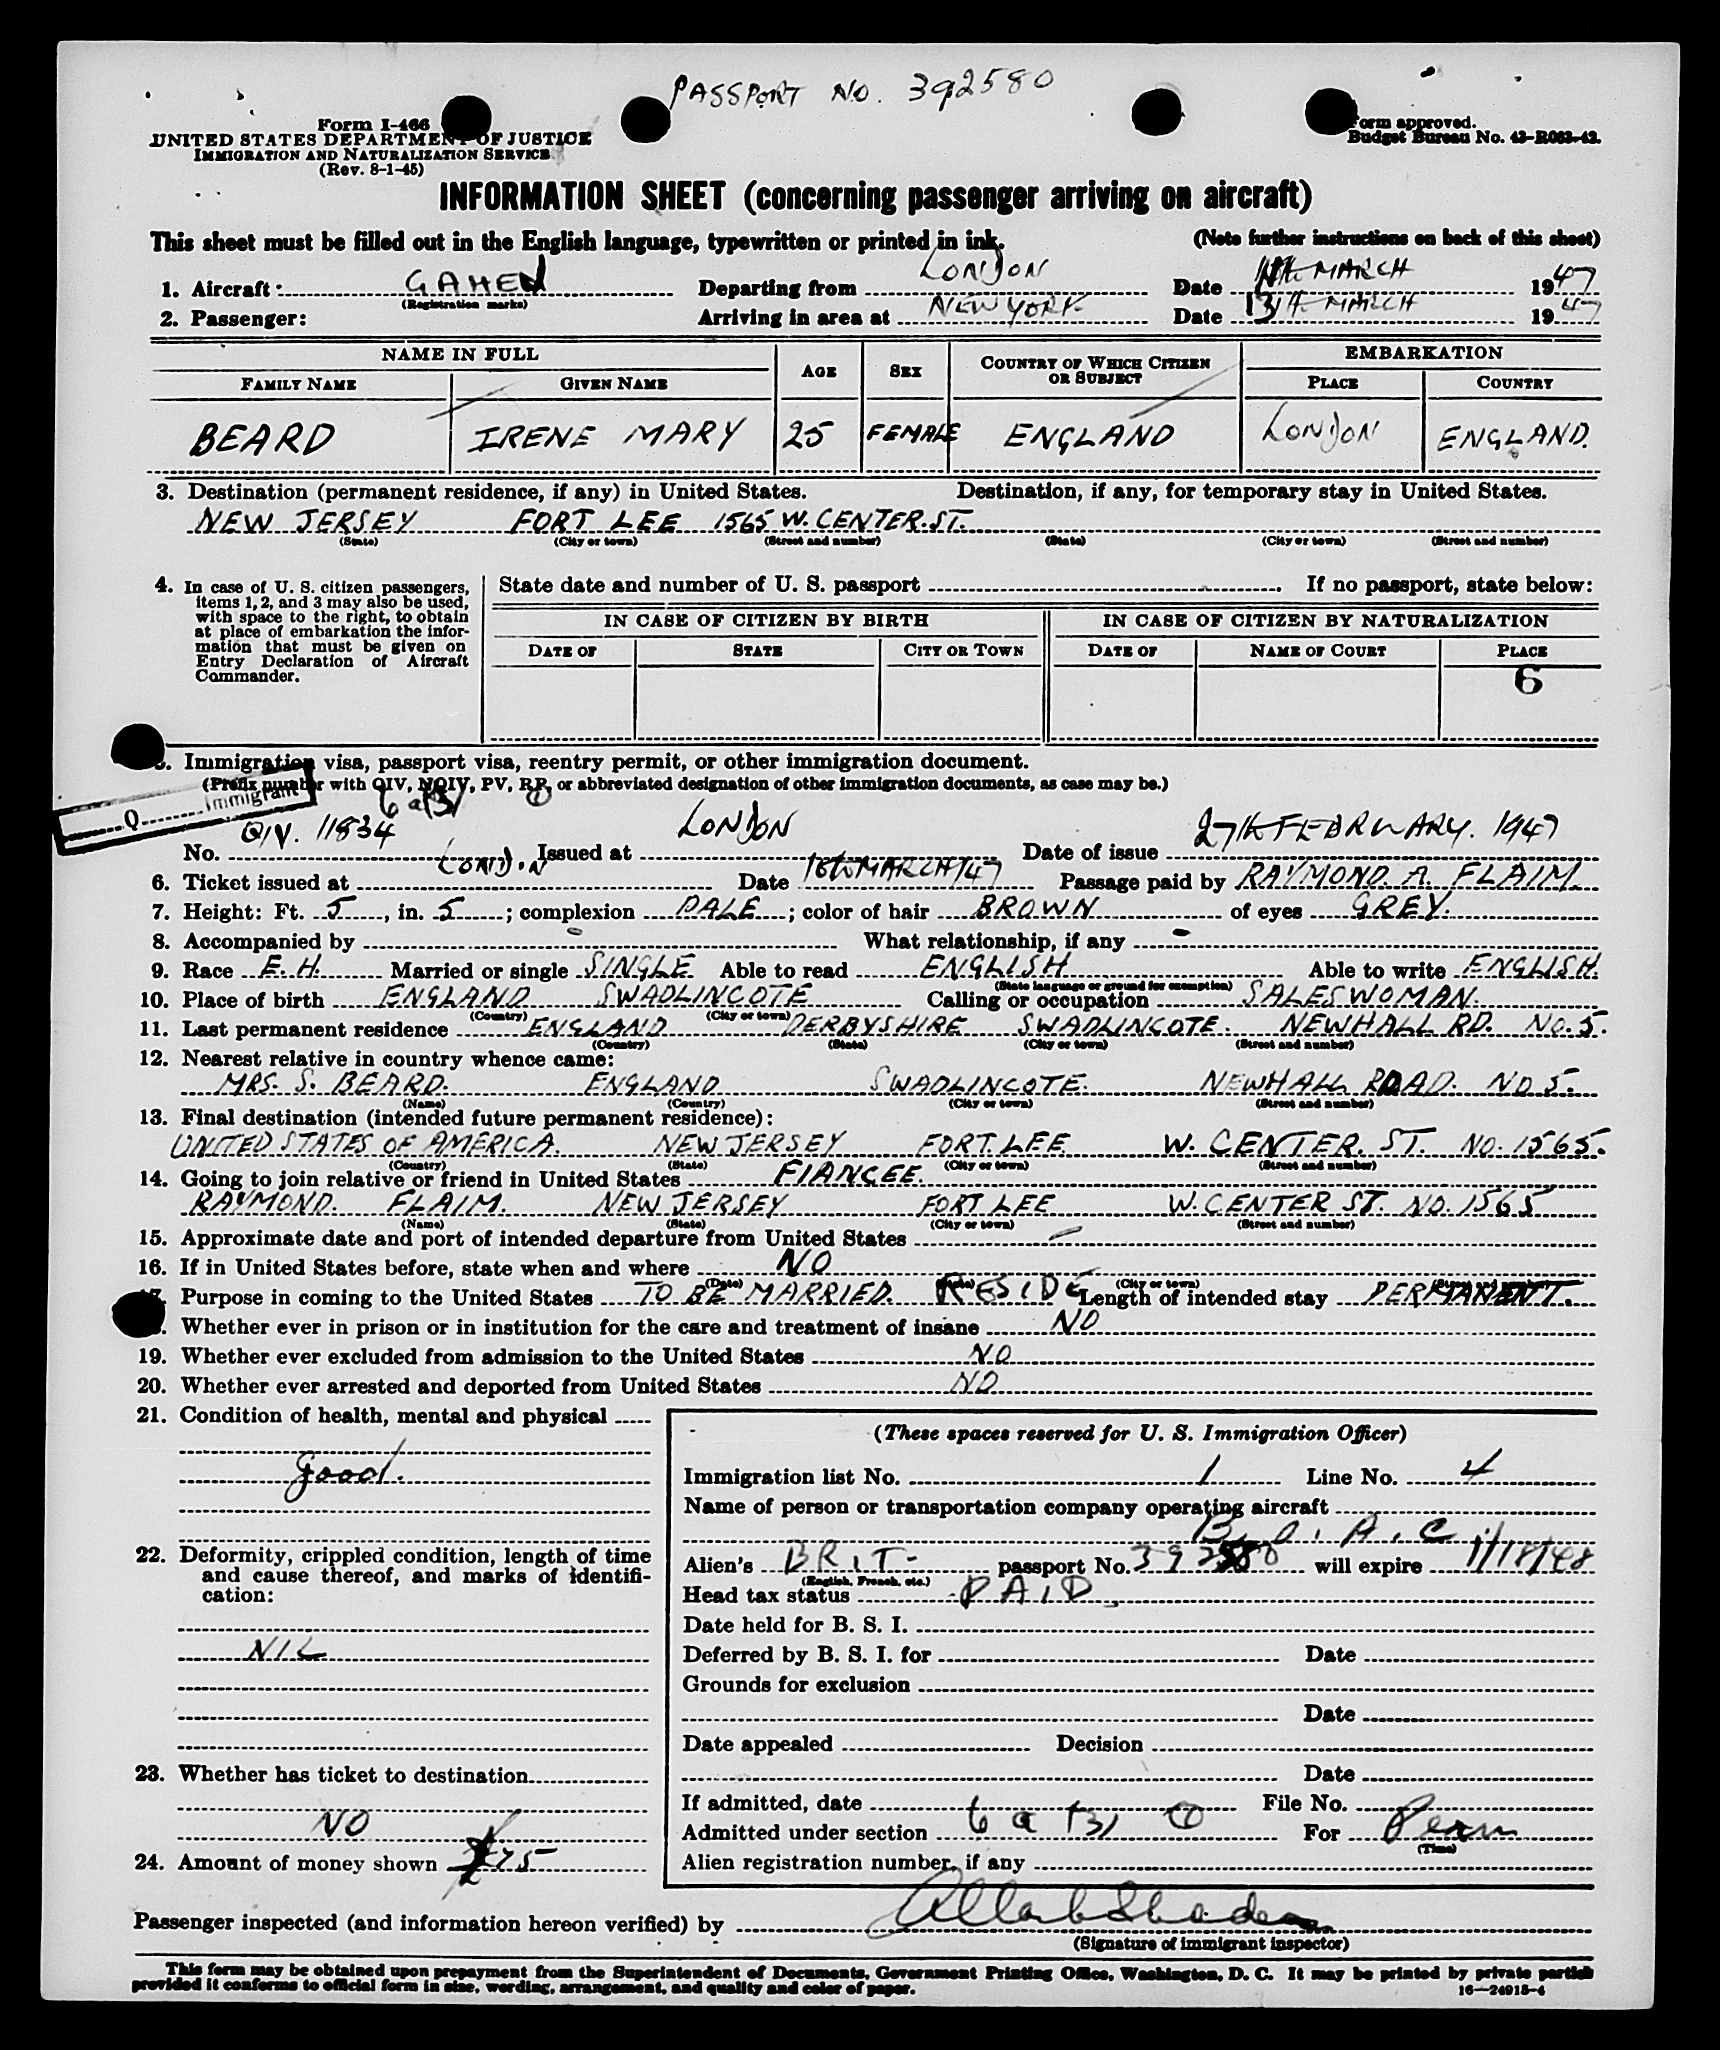 PASSPORT NO. 392580
Form I-466
UNITED STATES DEPARTMENT OF JUSTICE
IMMIGRATION AND NATURALIZATION SERVICE
(Rev. 8-1-45)
Form approved.
Budget Bureau No. 43-R063-42.
INFORMATION SHEET (concerning passenger arriving on aircraft)
This sheet must be filled out in the English language, typewritten or printed in ink. (Note further instructions on back of this sheet)
1. Aircraft: GAHEN Departing from LONDON Date MARCH 1947
(Registration marks)
2. Passenger: Arriving in area at NEW YORK Date 13TH MARCH 1947
NAME IN FULL AGE SEX COUNTRY OF WHICH CITIZEN OR SUBJECT EMBARKATION
FAMILY NAME GIVEN NAME PLACE COUNTRY
BEARD IRENE MARY 25 FEMALE ENGLAND LONDON ENGLAND.
3. Destination (permanent residence, if any) in United States. Destination, if any, for temporary stay in United States.
NEW JERSEY FORT LEE 1565 W. CENTER. ST.
(State) (City or town) (Street and number) (State) (City or town) (Street and number)
4. In case of U. S. citizen passengers, items 1, 2, and 3 may also be used, with space to the right, to obtain at place of embarkation the information that must be given on Entry Declaration of Aircraft Commander.
State date and number of U. S. passport If no passport, state below:
IN CASE OF CITIZEN BY BIRTH IN CASE OF CITIZEN BY NATURALIZATION
DATE OF STATE CITY OR TOWN DATE OF NAME OF COURT PLACE
6
5. Immigration visa, passport visa, reentry permit, or other immigration document.
(Prefix number with QIV, NQIV, PV, RP, or abbreviated designation of other immigration documents, as case may be.)
Q Immigrant
6 a (3)
No. QIV. 11834 Issued at LONDON Date of issue 27th FEBRUARY. 1947
6. Ticket issued at LONDON Date 10th MARCH/47 Passage paid by RAYMOND. A. FLAIM.
7. Height: Ft. 5, in. 5; complexion PALE; color of hair BROWN of eyes GREY.
8. Accompanied by - What relationship, if any -
9. Race E.H. Married or single SINGLE Able to read ENGLISH Able to write ENGLISH.
(State language or ground for exemption)
10. Place of birth ENGLAND SWADLINCOTE Calling or occupation SALESWOMAN.
(Country) (City or town)
11. Last permanent residence ENGLAND DERBYSHIRE SWADLINCOTE. NEWHALL RD. NO. 5.
(Country) (State) (City or town) (Street and number)
12. Nearest relative in country whence came:
MRS. S. BEARD. ENGLAND SWADLINCOTE. NEWHALL ROAD. NO 5.
(Name) (Country) (City or town) (Street and number)
13. Final destination (intended future permanent residence):
UNITED STATES OF AMERICA. NEW JERSEY FORT LEE W. CENTER. ST. NO. 1565.
(Country) (State) (City or town) (Street and number)
14. Going to join relative or friend in United States FIANCEE.
RAYMOND. FLAIM. NEW JERSEY FORT LEE W. CENTER ST. NO. 1565
(Name) (State) (City or town) (Street and number)
15. Approximate date and port of intended departure from United States -
16. If in United States before, state when and where NO
(Date) (State) (City or town) (Street and number)
17. Purpose in coming to the United States TO BE MARRIED. RESIDE Length of intended stay PERMANENT.
18. Whether ever in prison or in institution for the care and treatment of insane NO
19. Whether ever excluded from admission to the United States NO
20. Whether ever arrested and deported from United States NO
21. Condition of health, mental and physical
good.
22. Deformity, crippled condition, length of time and cause thereof, and marks of identification:
NIL
23. Whether has ticket to destination
NO
24. Amount of money shown 75
(These spaces reserved for U. S. Immigration Officer)
Immigration list No. 1 Line No. 4
Name of person or transportation company operating aircraft
B. O. A. C
Alien's BRIT- passport No. 392580 will expire 1/18/48
(English, French, etc.)
Head tax status PAID
Date held for B. S. I.
Deferred by B. S. I. for Date
Grounds for exclusion
Date
Date appealed Decision
Date
If admitted, date File No.
Admitted under section 6 a (3) For Perm
(Time)
Alien registration number, if any
Passenger inspected (and information hereon verified) by
(Signature of immigrant inspector)
This form may be obtained upon prepayment from the Superintendent of Documents, Government Printing Office, Washington, D. C. It may be printed by private parties
provided it conforms to official form in size, wording, arrangement, and quality and color of paper.
16—24915-4